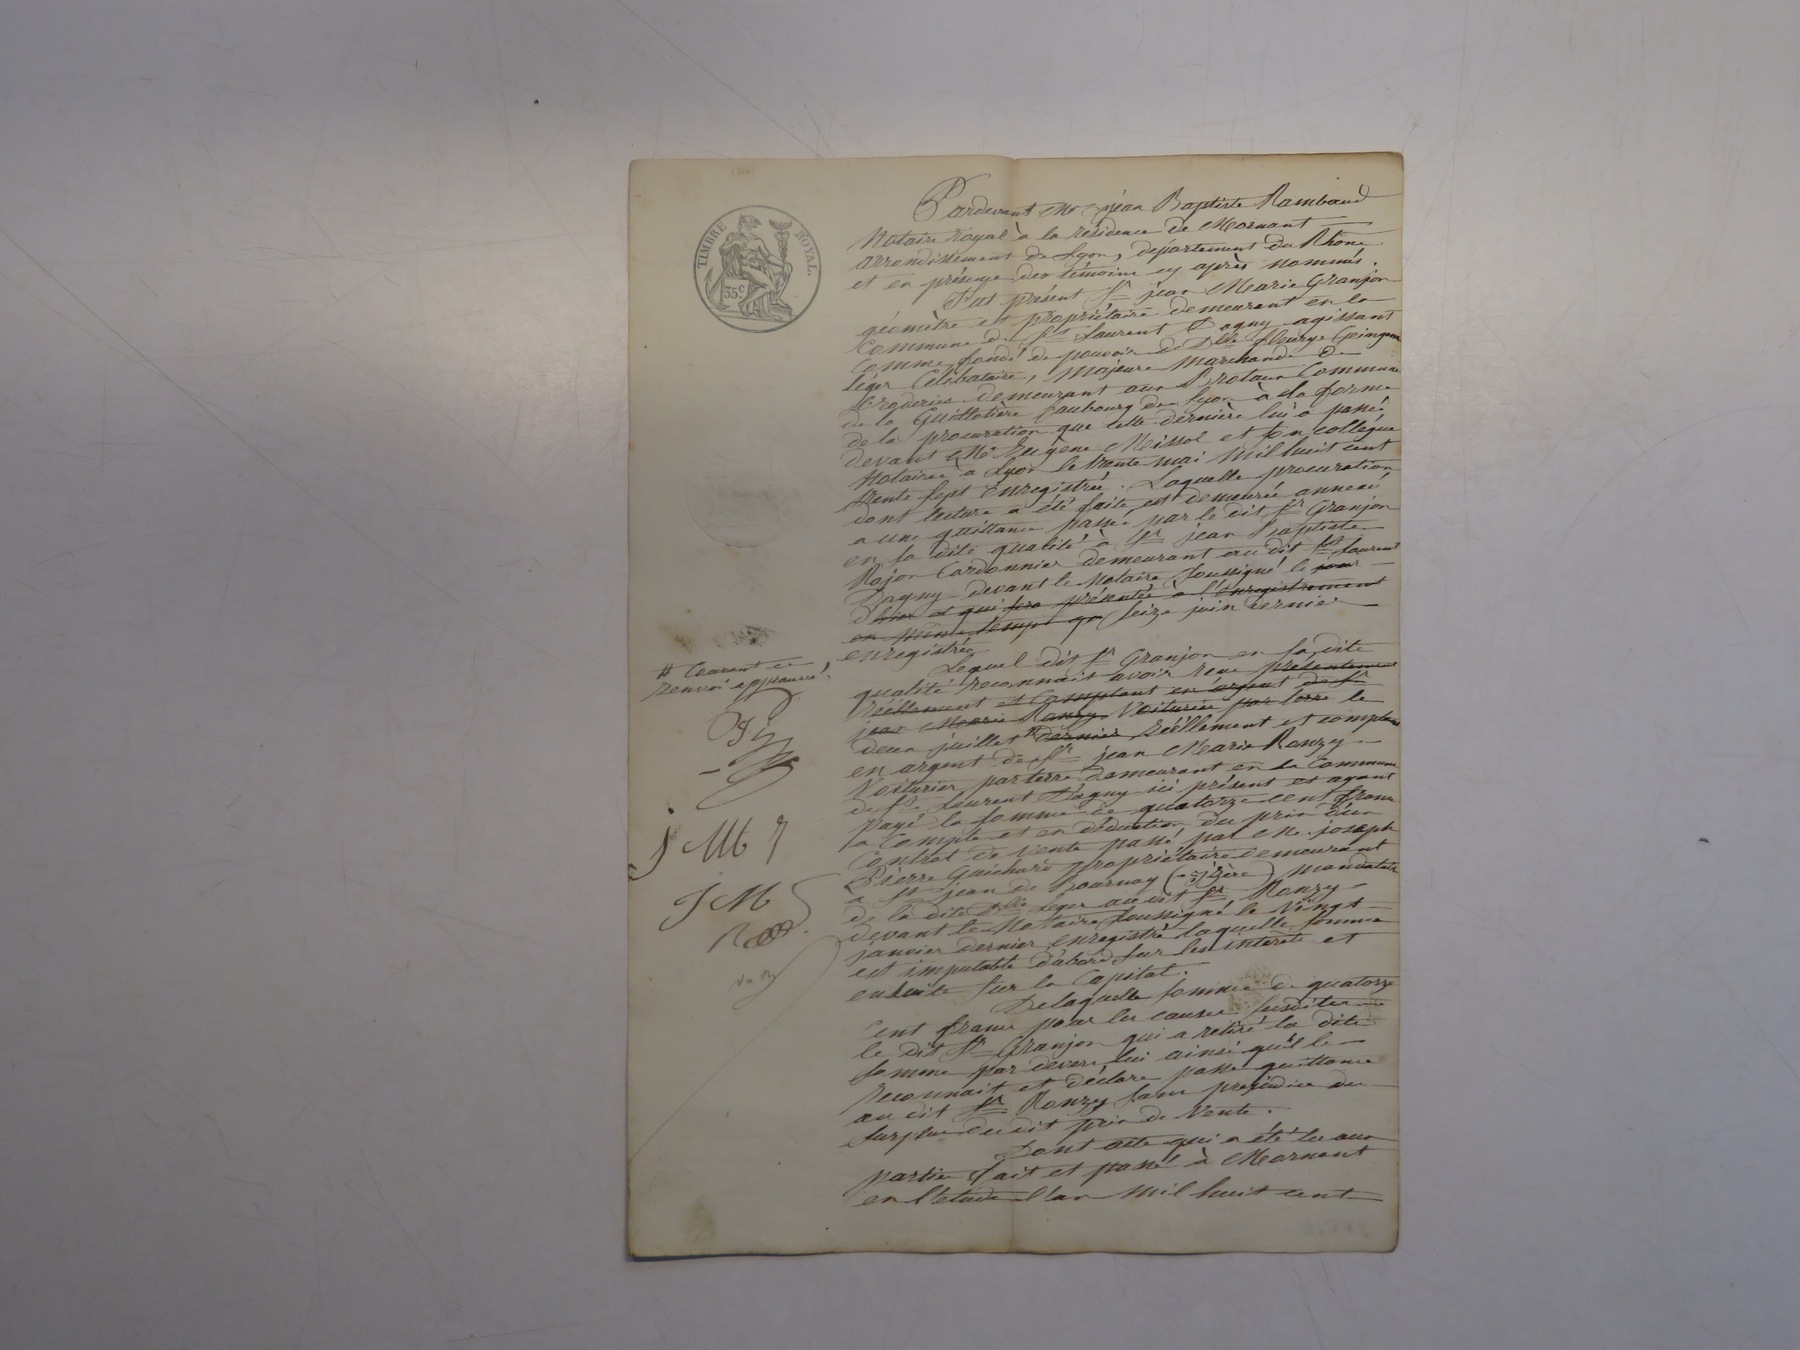 TIMBRE ROYAL.
35 c
Pardevant Me jéan Baptiste Rambaud
Notaire royal à la résidence de Mornant
arrondissement de Lyon, département du Rhône
et en présence des témoins cy après nommés.
Fut présent Sr jéan Marie Granjon
géomètre et propriétaire demeurant en la
Commune de St Laurent Dagny agissant
Comme fondé de pouvoir de Dlle fleurye
léger Célibataire, Majeure Marchande de
broderies demeurant aux Brotaux Commune
de la Guillotière faubourg de Lyon à la forme
de la procuration que cette dernière lui a passé,
devant Me Eugène Meissol et son collègue
Notaires à Lyon le trente mai Mil huit cent
trente sept Enregistrée. Laquelle procuration
dont lecture a été faite est demeurée annexé
a une quittance passée par le dit Sr Granjon
en sa dite qualité à Sr jean Baptiste
Rajon Cordonnier demeurant au dit St Laurent
Dagny devant le Notaire Soussigné le jour
d'hier et qui sera présentée à l'Enregistrement
en même temps que Seize juin dernier
enregistrée
Lequel dit Sr Granjon en sa dite
qualité reconnait avoir reçu présentement
réellement et Comptant en argent de Sr
jean Marie Ronzy Voiturier par terre le
deux juillet # dernier réellement et comptant
en argent de Sr jean Marie Ronzy
Voiturier par terre demeurant en la Commune
de St Laurent Dagny ici présent et ayant
payé la somme de quatorze cent francs
a Compte et en déduction du prix d'un
Contrat de Vente passé par Me joseph
Pierre Guichard propriétaire demeurant
a St jean de Bournay (isère) mandataire
de la dite Dlle Léger au dit Sr Ronzy
devant le Notaire soussigné le vingt
janvier dernier enregistré laquelle somme
est imputable d'abord sur les intérêts et
ensuite sur le Capital.
Delaquelle somme de quatorze
Cent francs pour les causes susdites
le dit Sr Granjon qui a retiré la dite
somme par devers lui ainsi qu'il le
reconnait et déclare passe quittance
au dit Sr Ronzy sans préjudice du
surplus du dit prix de Vente.
Dont acte qui a été lu aux
parties fait et passé à Mornant
en l'étude l'an Mil huit cent
# Courant ce
renvoi approuvé
J M